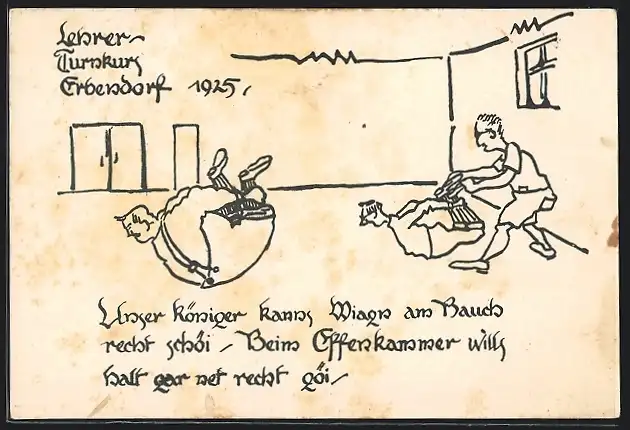 Lehrer-
Turnkurs
Erbendorf 1925.
Unser Königer kanns Wiagn am Bauch
recht schöi - Beim Effenkammer wills
halt gar net recht göi -